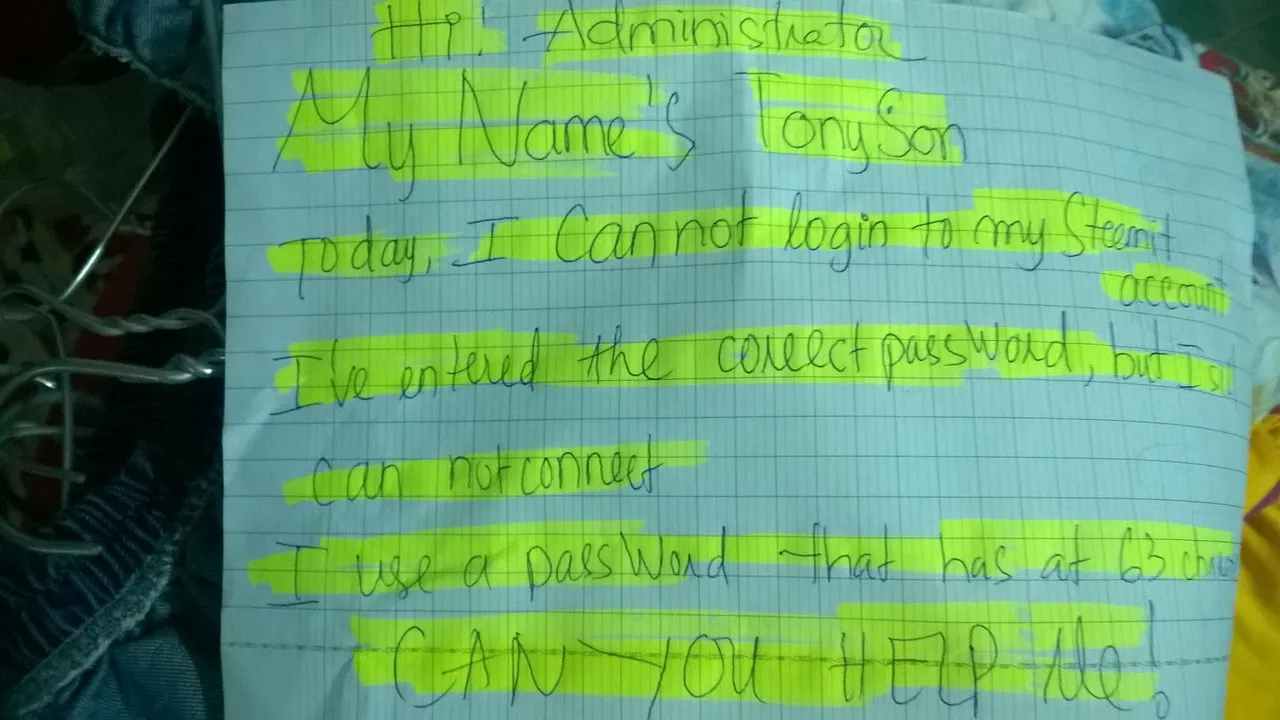 Hi! Administrator
My Name's TonySon
Today, I Cannot login to my Steemit
account
I've entered the correct password, but I
can not connect
I use a password that has at 63
CAN YOU HELP Me!